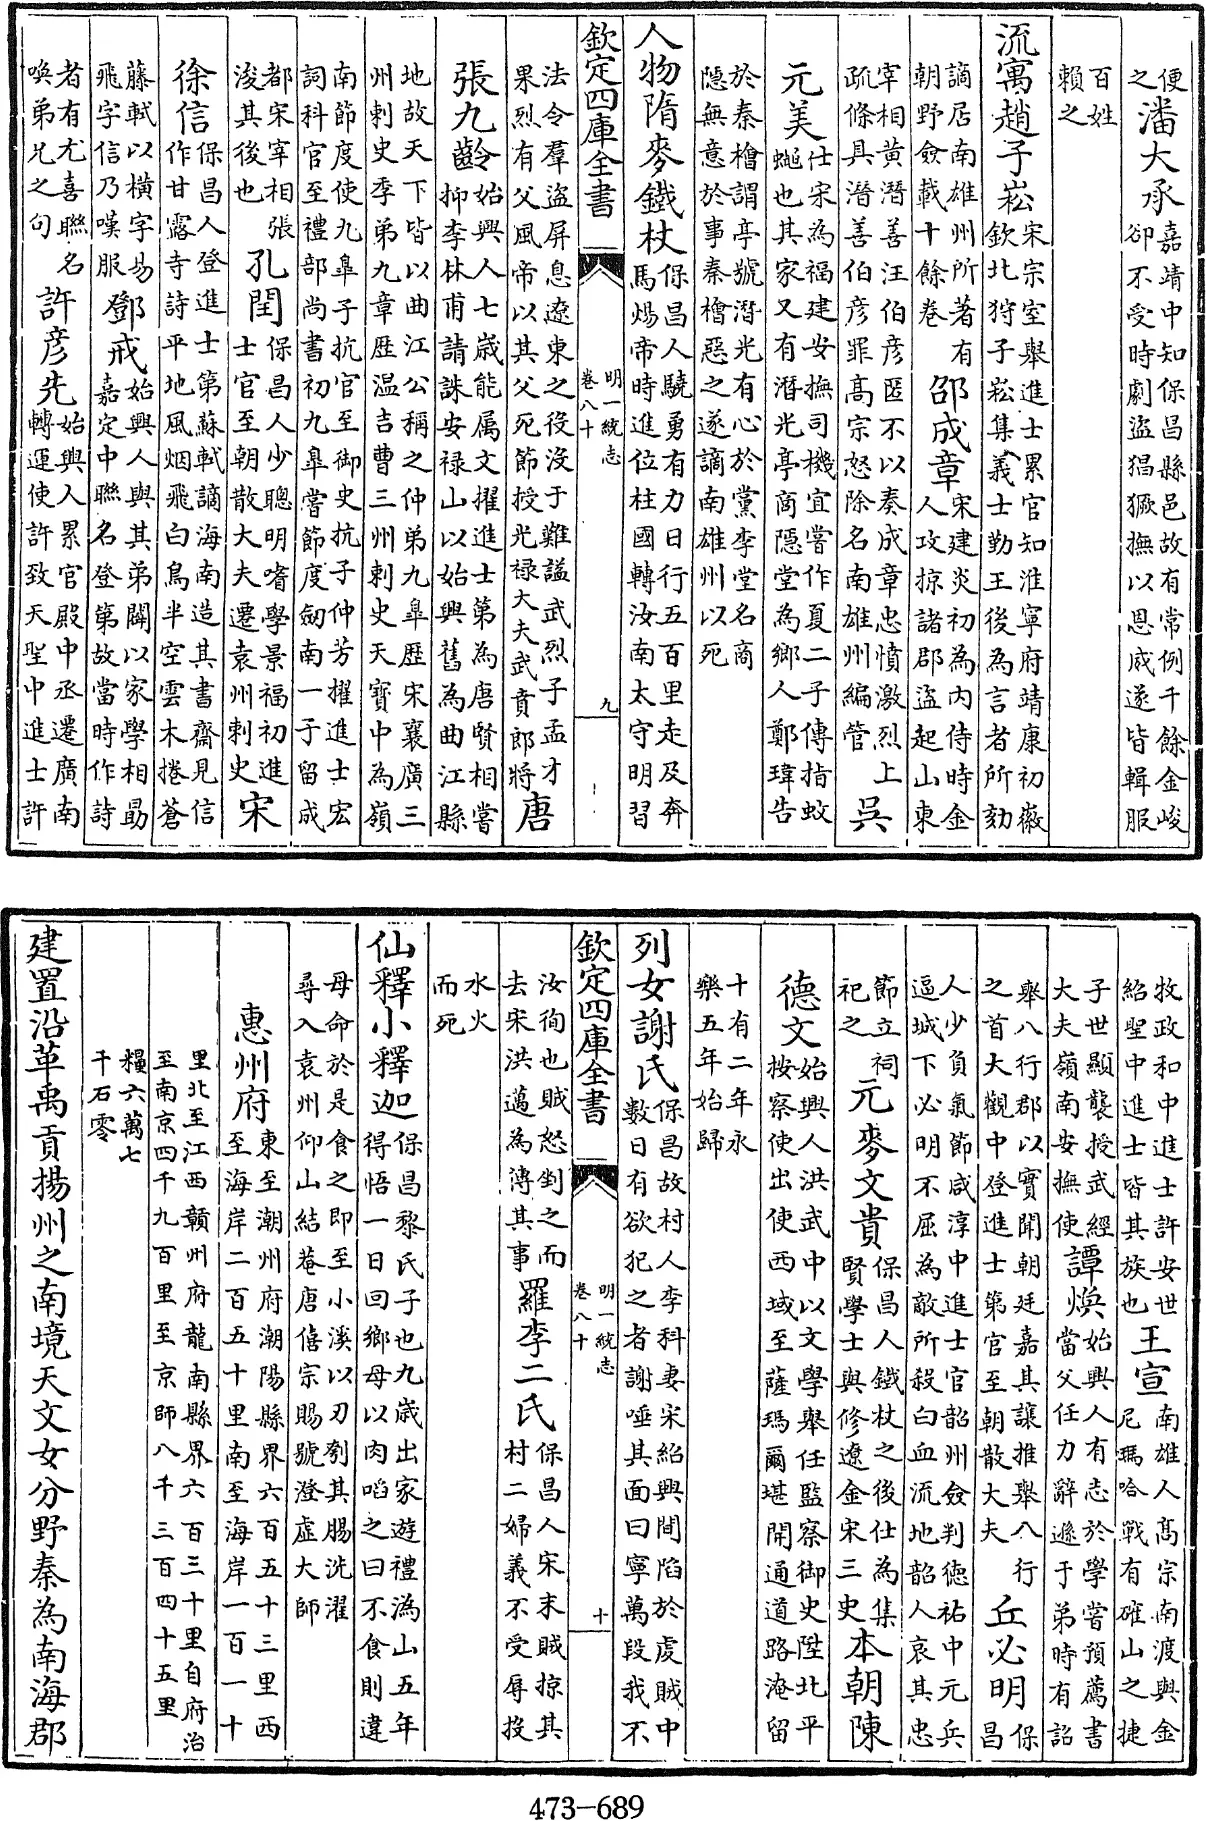 便之潘大承嘉靖中知保昌縣邑故有常例千餘金峻卻不受時劇盜猖獗撫以恩威遂皆輯服
百姓賴之
流寓趙子崧宋宗室舉進士累官知淮寧府靖康初徽欽北狩子崧集義士勤王後為言者所劾
謫居南雄州所著有朝野僉載十餘卷邵成章宋建炎初為内侍時金人攻掠諸郡盜起山東
宰相黃潛善汪伯彦匿不以奏成章忠憤激烈上疏條具潛善伯彦罪髙宗怒除名南雄州編管吳
元美仕宋為福建安撫司機宜嘗作夏二子傳指蚊蜨也其家又有潛光亭商隱堂為鄉人鄭瑋告
於秦檜謂亭號潛光有心於黨李堂名商隱無意於事秦檜惡之遂謫南雄州以死
人物隋麥鐵杖保昌人驍勇有力日行五百里走及奔馬煬帝時進位柱國轉汝南太守明習
欽定四庫全書 明一統志 卷八十 九
法令羣盜屏息遼東之役沒于難謚武烈子孟才果烈有父風帝以其父死節授光禄大夫武賁郎將唐
張九齡始興人七歲能属文擢進士第為唐賢相嘗抑李林甫請誅安禄山以始興舊為曲江縣
地故天下皆以曲江公稱之仲弟九臯歴宋襄廣三州刺史季弟九章歴温吉曹三州刺史天寶中為嶺
南節度使九臯子抗官至御史抗子仲芳擢進士宏詞科官至禮部尚書初九臯嘗節度劒南一子留成
都宋宰相張浚其後也孔閏保昌人少聰明嗜學景福初進士官至朝散大夫遷袁州刺史宋
徐信保昌人登進士第蘇軾謫海南造其書齋見信作甘露寺詩平地風烟飛白鳥半空雲木捲蒼
藤軾以横字易飛字信乃嘆服鄧戒始興人與其弟闢以家學相勗嘉定中聯名登第故當時作詩
者有尤喜聯名喚弟兄之句許彦先始興人累官殿中丞遷廣南轉運使許致天聖中進士許
牧政和中進士許安世紹聖中進士皆其族也王宣南雄人髙宗南渡與金尼瑪哈戰有確山之捷
子世顯襲授武經大夫嶺南安撫使譚煥始興人有志於學嘗預薦書當父任力辭遜于弟時有詔
舉八行郡以實聞朝廷嘉其讓推舉八行之首大觀中登進士第官至朝散大夫丘必明保昌
人少負氣節咸淳中進士官韶州僉判德祐中元兵逼城下必明不屈為敵所殺白血流地韶人哀其忠
節立祠祀之元麥文貴保昌人鐵杖之後仕為集賢學士與修遼金宋三史本朝陳
德文始興人洪武中以文學舉任監察御史陞北平按察使出使西域至薩瑪爾堪開通道路淹留
十有二年永樂五年始歸
列女謝氏保昌故村人李科妻宋紹興間陷於虔賊中數日有欲犯之者謝唾其面曰寧萬段我不
欽定四庫全書 明一統志 卷八十 十
汝徇也賊怒剉之而去宋洪邁為傳其事羅李二氏保昌人宋末賊掠其村二婦義不受辱投
水火而死
仙釋小釋迦保昌黎氏子也九歲出家遊禮溈山五年得悟一日回鄉母以肉啗之曰不食則違
母命於是食之即至小溪以刃刳其腸洗濯尋入袁州仰山結菴唐僖宗賜號澄虚大師
惠州府東至潮州府潮陽縣界六百五十三里西至海岸二百五十里南至海岸一百一十
里北至江西贛州府龍南縣界六百三十里自府治至南京四千九百里至京師八千三百四十五里
糧六萬七千石零
建置沿革禹貢揚州之南境天文女分野秦為南海郡
473-689